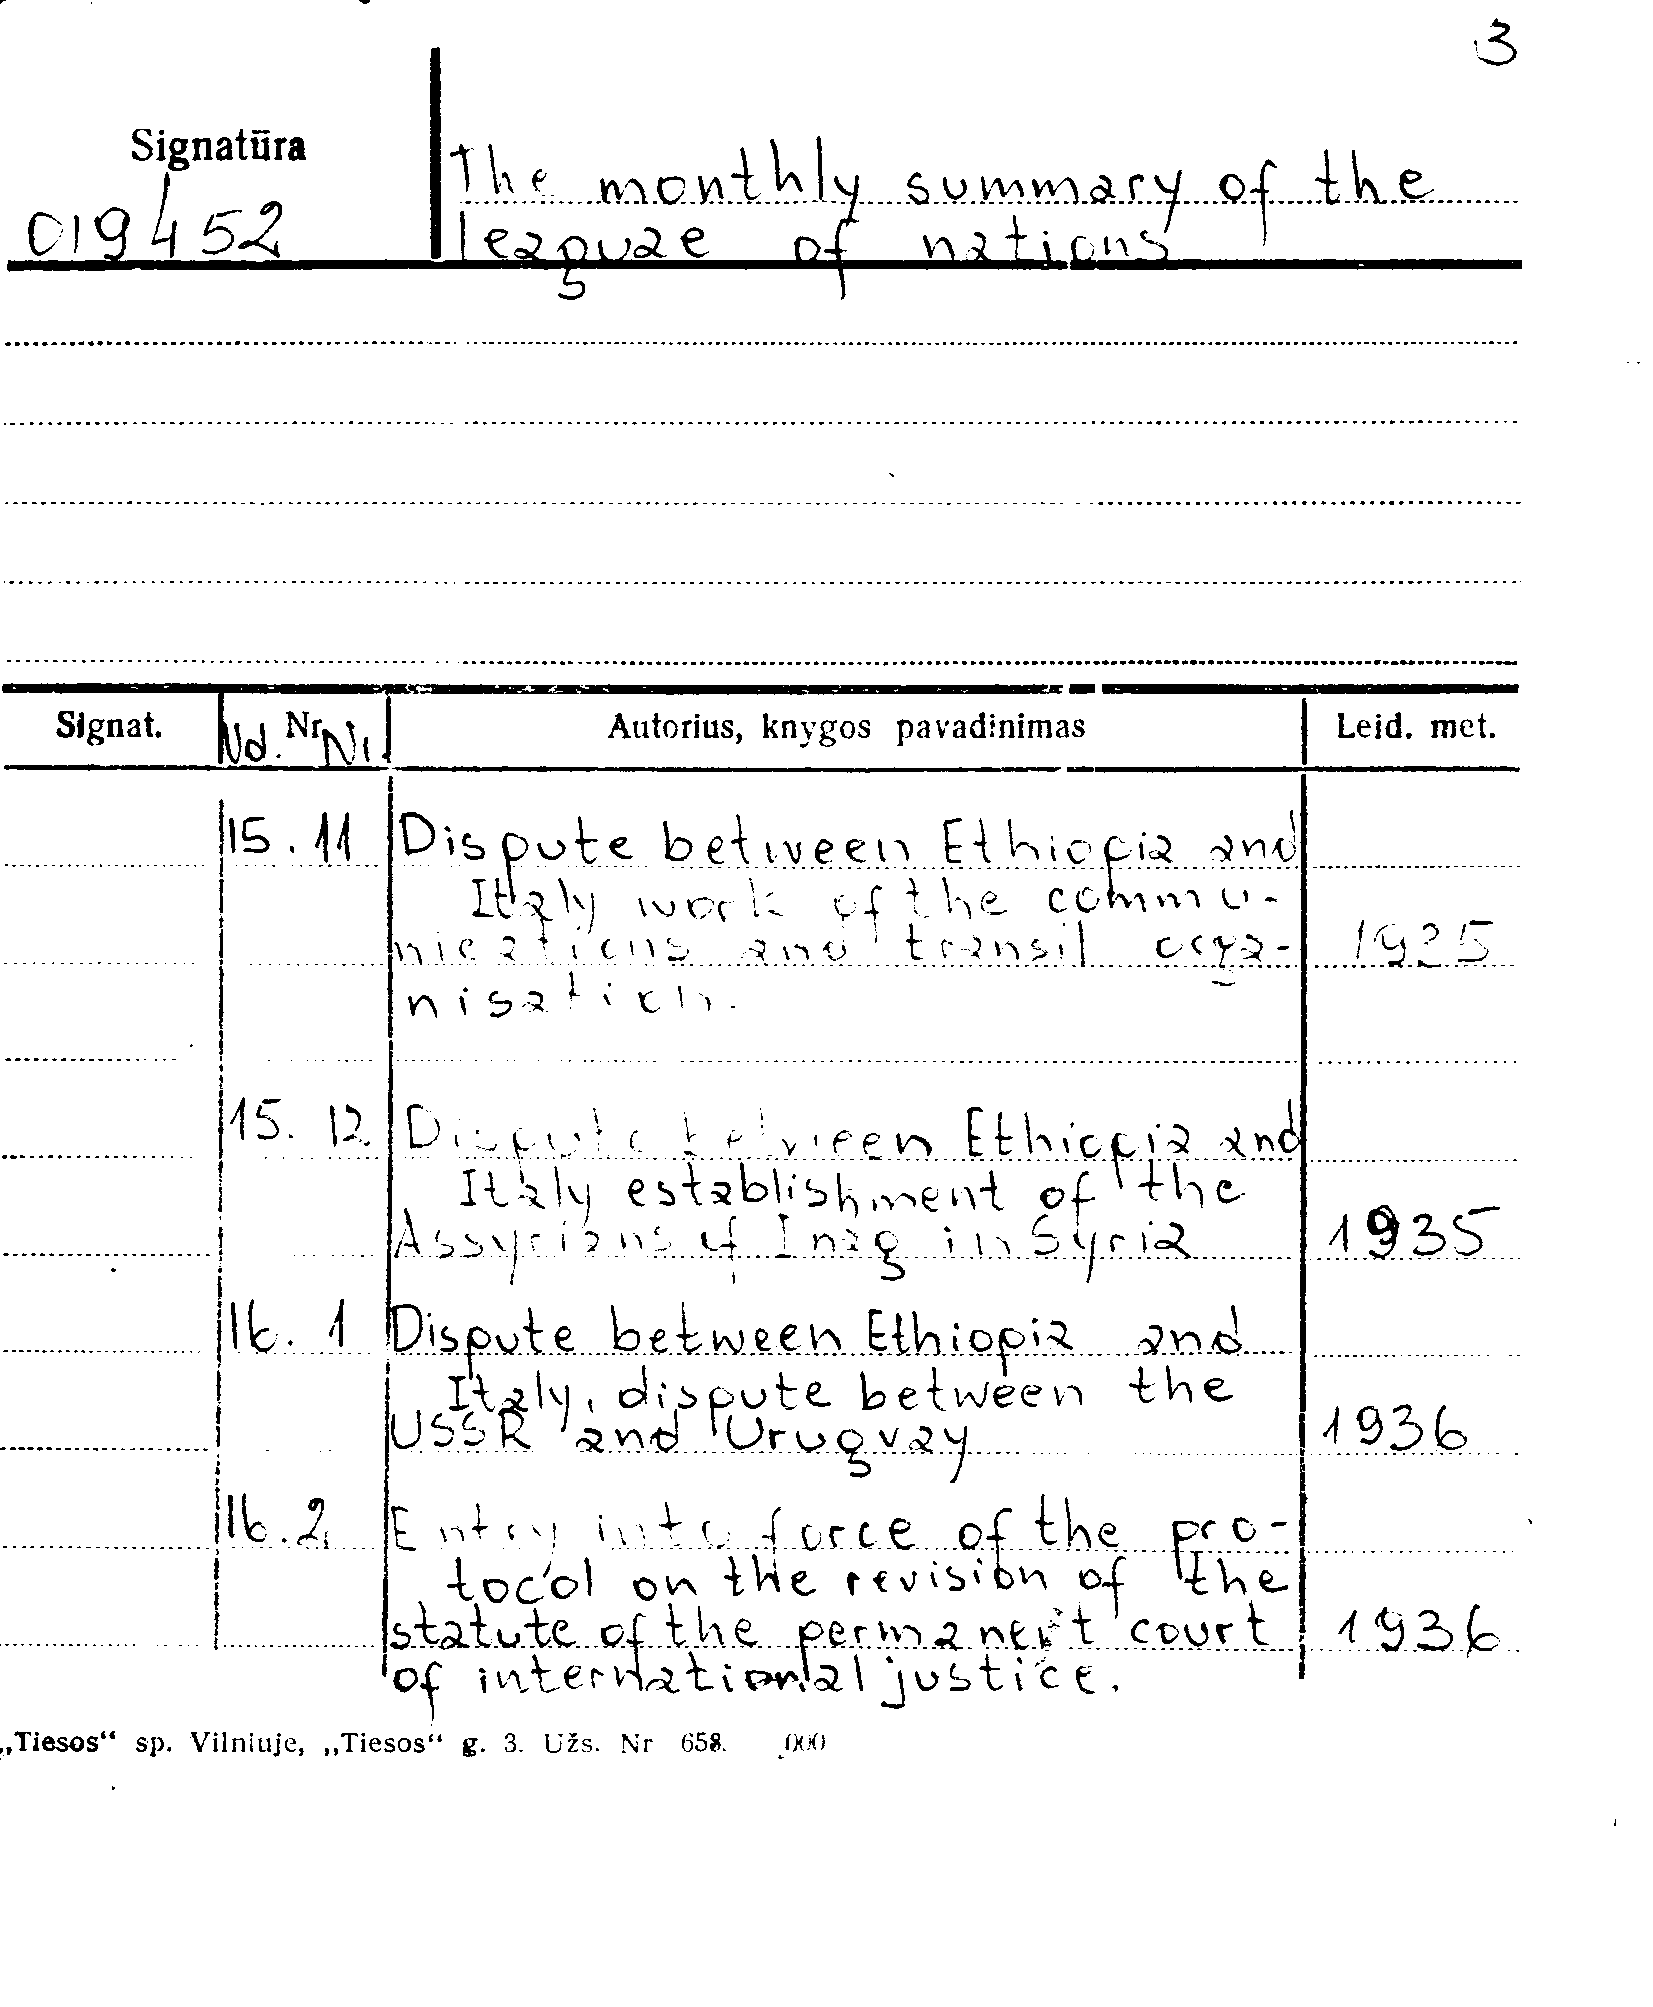 3
Signatūra
019452
The monthly summary of the
leaguae of nations
Signat.
Nd. Nr. Nr.
Autorius, knygos pavadinimas
Leid. met.
15. 11 Dispute between Ethiopia and
Italy work of the commu-
nications and transil orga- 1935
nisation.
15. 12 Dispute between Ethiopia and
Italy establishment of the
Assyrians of Inag in Syria 1935
16. 1 Dispute between Ethiopia and
Italy, dispute between the
USSR and Urugvay 1936
16. 2 Entry into force of the pro-
tocol on the revision of the
statute of the permanent court 1936
of international justice.
„Tiesos“ sp. Vilniuje, „Tiesos“ g. 3. Užs. Nr 658. 000